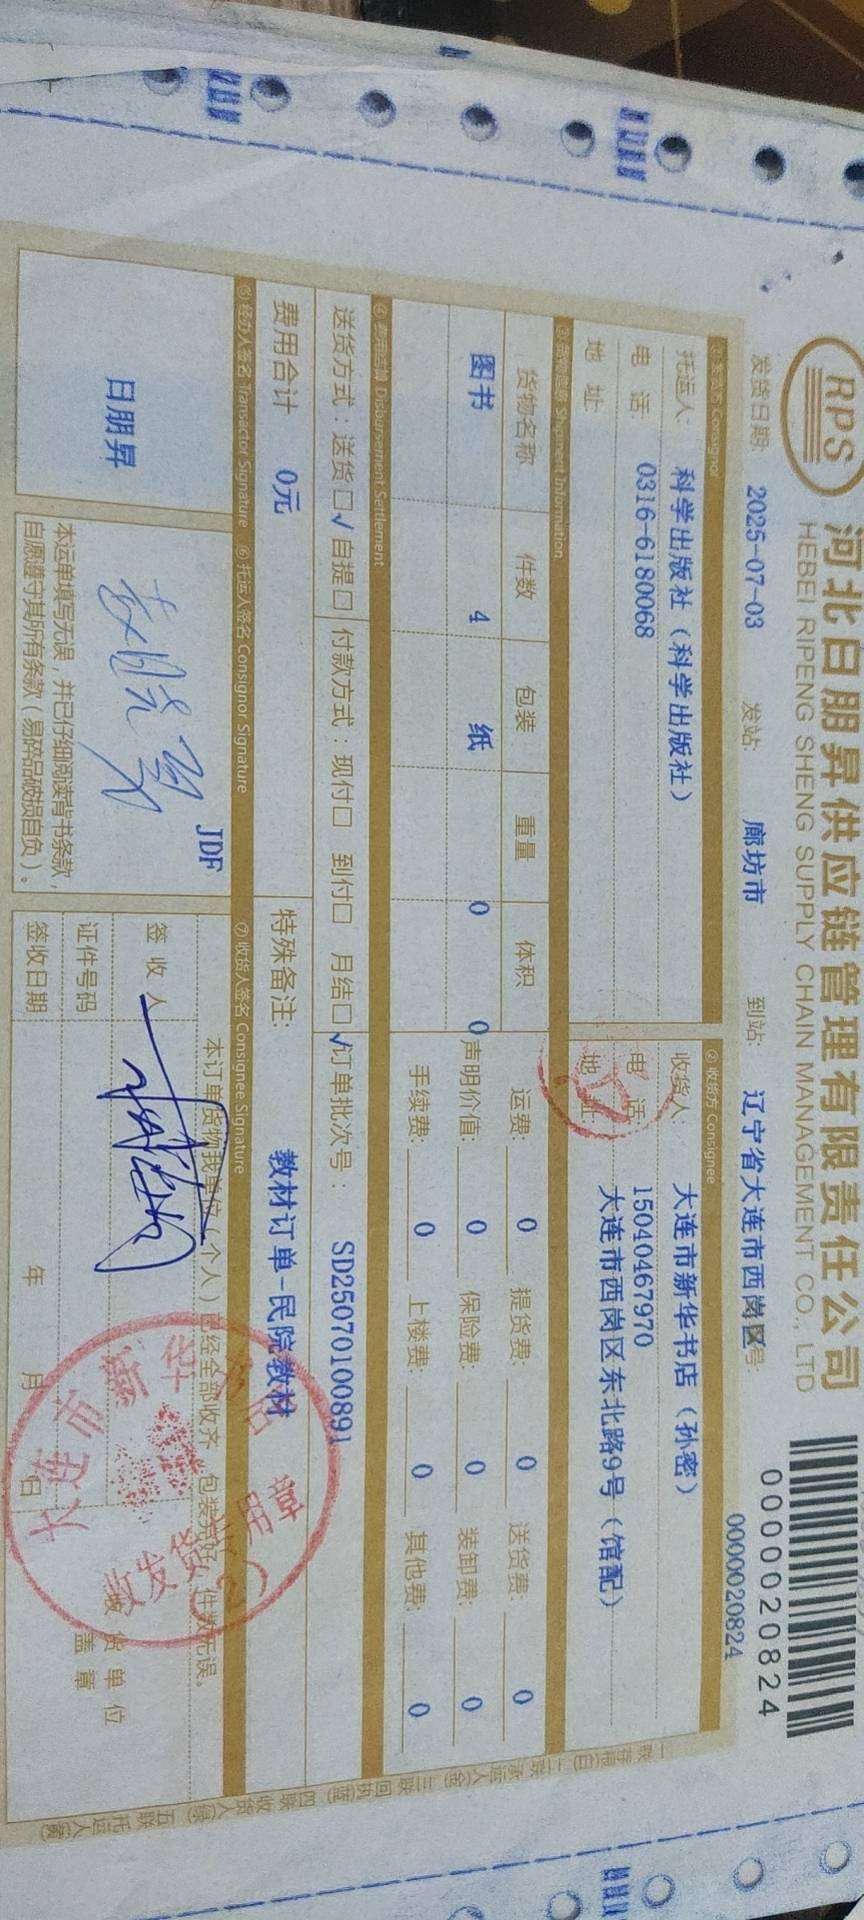 RPS
河北日朋昇供应链管理有限责任公司
HEBEI RIPENG SHENG SUPPLY CHAIN MANAGEMENT CO., LTD
0000020824
0000020824
发货日期: 2025-07-03 发站: 廊坊市 到站: 辽宁省大连市西岗区号:
Consignor
② 收货方 Consignee
托运人: 科学出版社（科学出版社）
收货人: 大连市新华书店（孙密）
电话: 0316-6180068
电话: 15040467970
地址:
地址: 大连市西岗区东北路9号（馆配）
Shipment Information
货物名称 件数 包装 重量 体积
运费: 0 提货费: 0 送货费: 0
图书 4 纸 0 0
声明价值: 0 保险费: 0 装卸费: 0
手续费: 0 上楼费: 0 其他费: 0
④ 费用结算 Disbursement Settlement
送货方式: 送货□√ 自提□ 付款方式: 现付□ 到付□ 月结□√
订单批次号: SD25070100891
费用合计 0元
特殊备注: 教材订单-民院教材
⑤ 经办人签名 Transactor Signature ⑥ 托运人签名 Consignor Signature ⑦ 收货人签名 Consignee Signature
日朋昇
JDF
本运单填写无误，并已仔细阅读背书条款，
自愿遵守其所有条款（易碎品破损自负）。
本订单货物我单位（个人）已经全部收齐，包装完好，件数无误。
签收人
证件号码
签收日期 年 月 日
收货单位
盖章
大连市新华书店
收发货专用章
(2)
一联存根(白) 二联承运人(金) 三联回执(蓝) 四联收货人(绿) 五联托运人(黄)